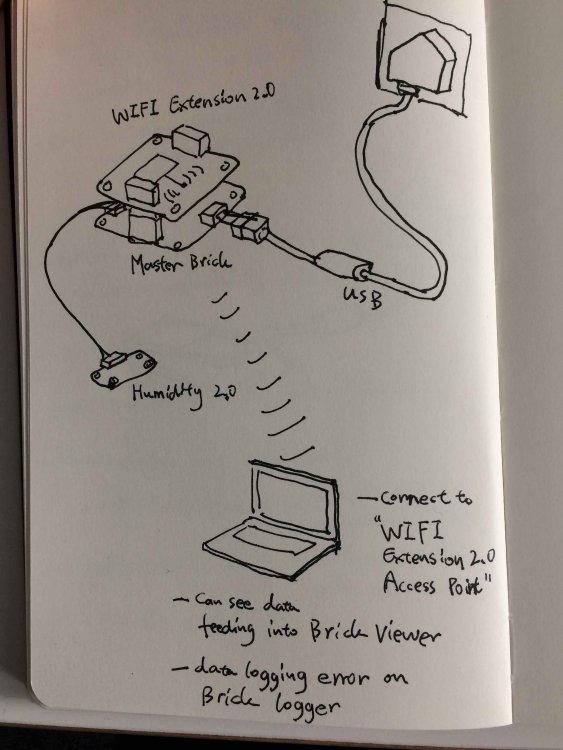 WIFI Extension 2.0
Master Brick
USB
Humidity 2.0
- Connect to
"WIFI
Extension 2.0
Access Point"
- Can see data
feeding into Brick Viewer
- data logging error on
Brick logger